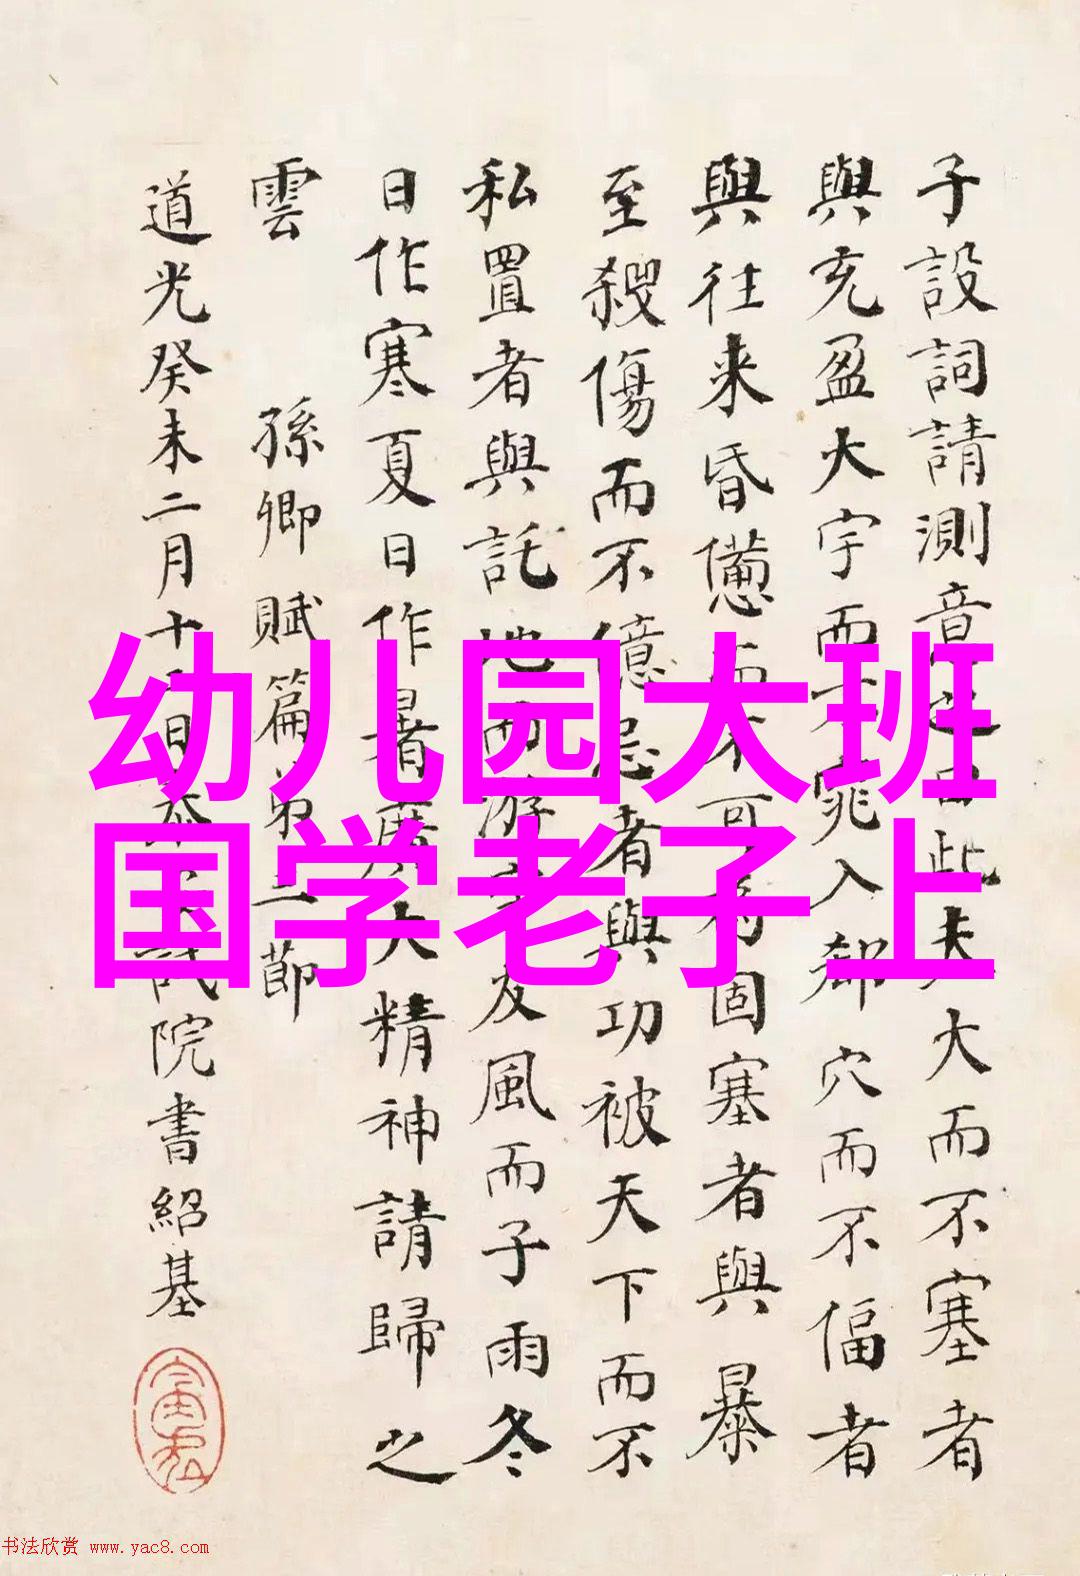 子設詞請測意之曰此夫大而不塞者
與充盈大宇而不窕入郄穴而不偪者
與往来昏憊而不可為固塞者與暴
至殺傷而不億忌者與功被天下而不
私置者與託地而游宇友風而子雨冬
日作寒夏日作暑廣大精神請歸之
雲 孫卿賦篇弟二節
道光癸未二月十日試院書紹基
幼儿园大班
国学老子上
书法欣赏 www.yac8.com